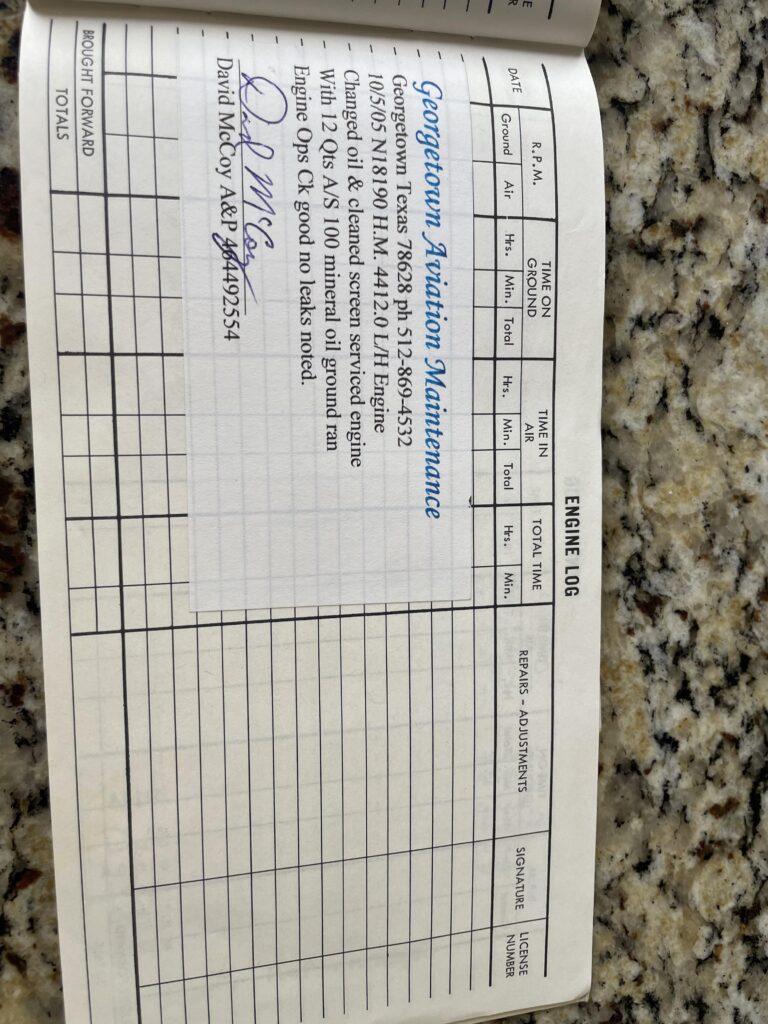 ENGINE LOG
DATE
R.P.M.
TIME ON GROUND
TIME IN AIR
TOTAL TIME
REPAIRS - ADJUSTMENTS
SIGNATURE
LICENSE NUMBER
Ground Air Hrs. Min. Total Hrs. Min. Total Hrs. Min.
Georgetown Aviation Maintenance
Georgetown Texas 78628 ph 512-869-4532
10/5/05 N18190 H.M. 4412.0 L/H Engine
Changed oil & cleaned screen serviced engine
With 12 Qts A/S 100 mineral oil ground ran
Engine Ops Ck good no leaks noted.
David McCoy
David McCoy A&P 464492554
BROUGHT FORWARD
TOTALS